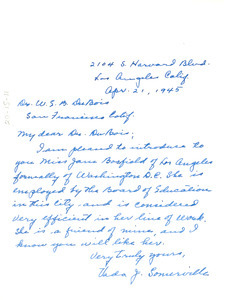 2104 S. Harvard Blvd.
Los Angeles Calif
Apr. 21, 1945
Dr. W. E. B. DuBois
San Francisco Calif.
My dear Dr. DuBois;
I am pleased to introduce to
you Miss Jane Bosfield of Los Angeles
formally of Washington D.C. She is
employed by the Board of Education
in this city - and is considered
very efficient in her line of work.
She is a friend of mine, and I
know you will like her.
Very truly yours,
Vada J. Somerville